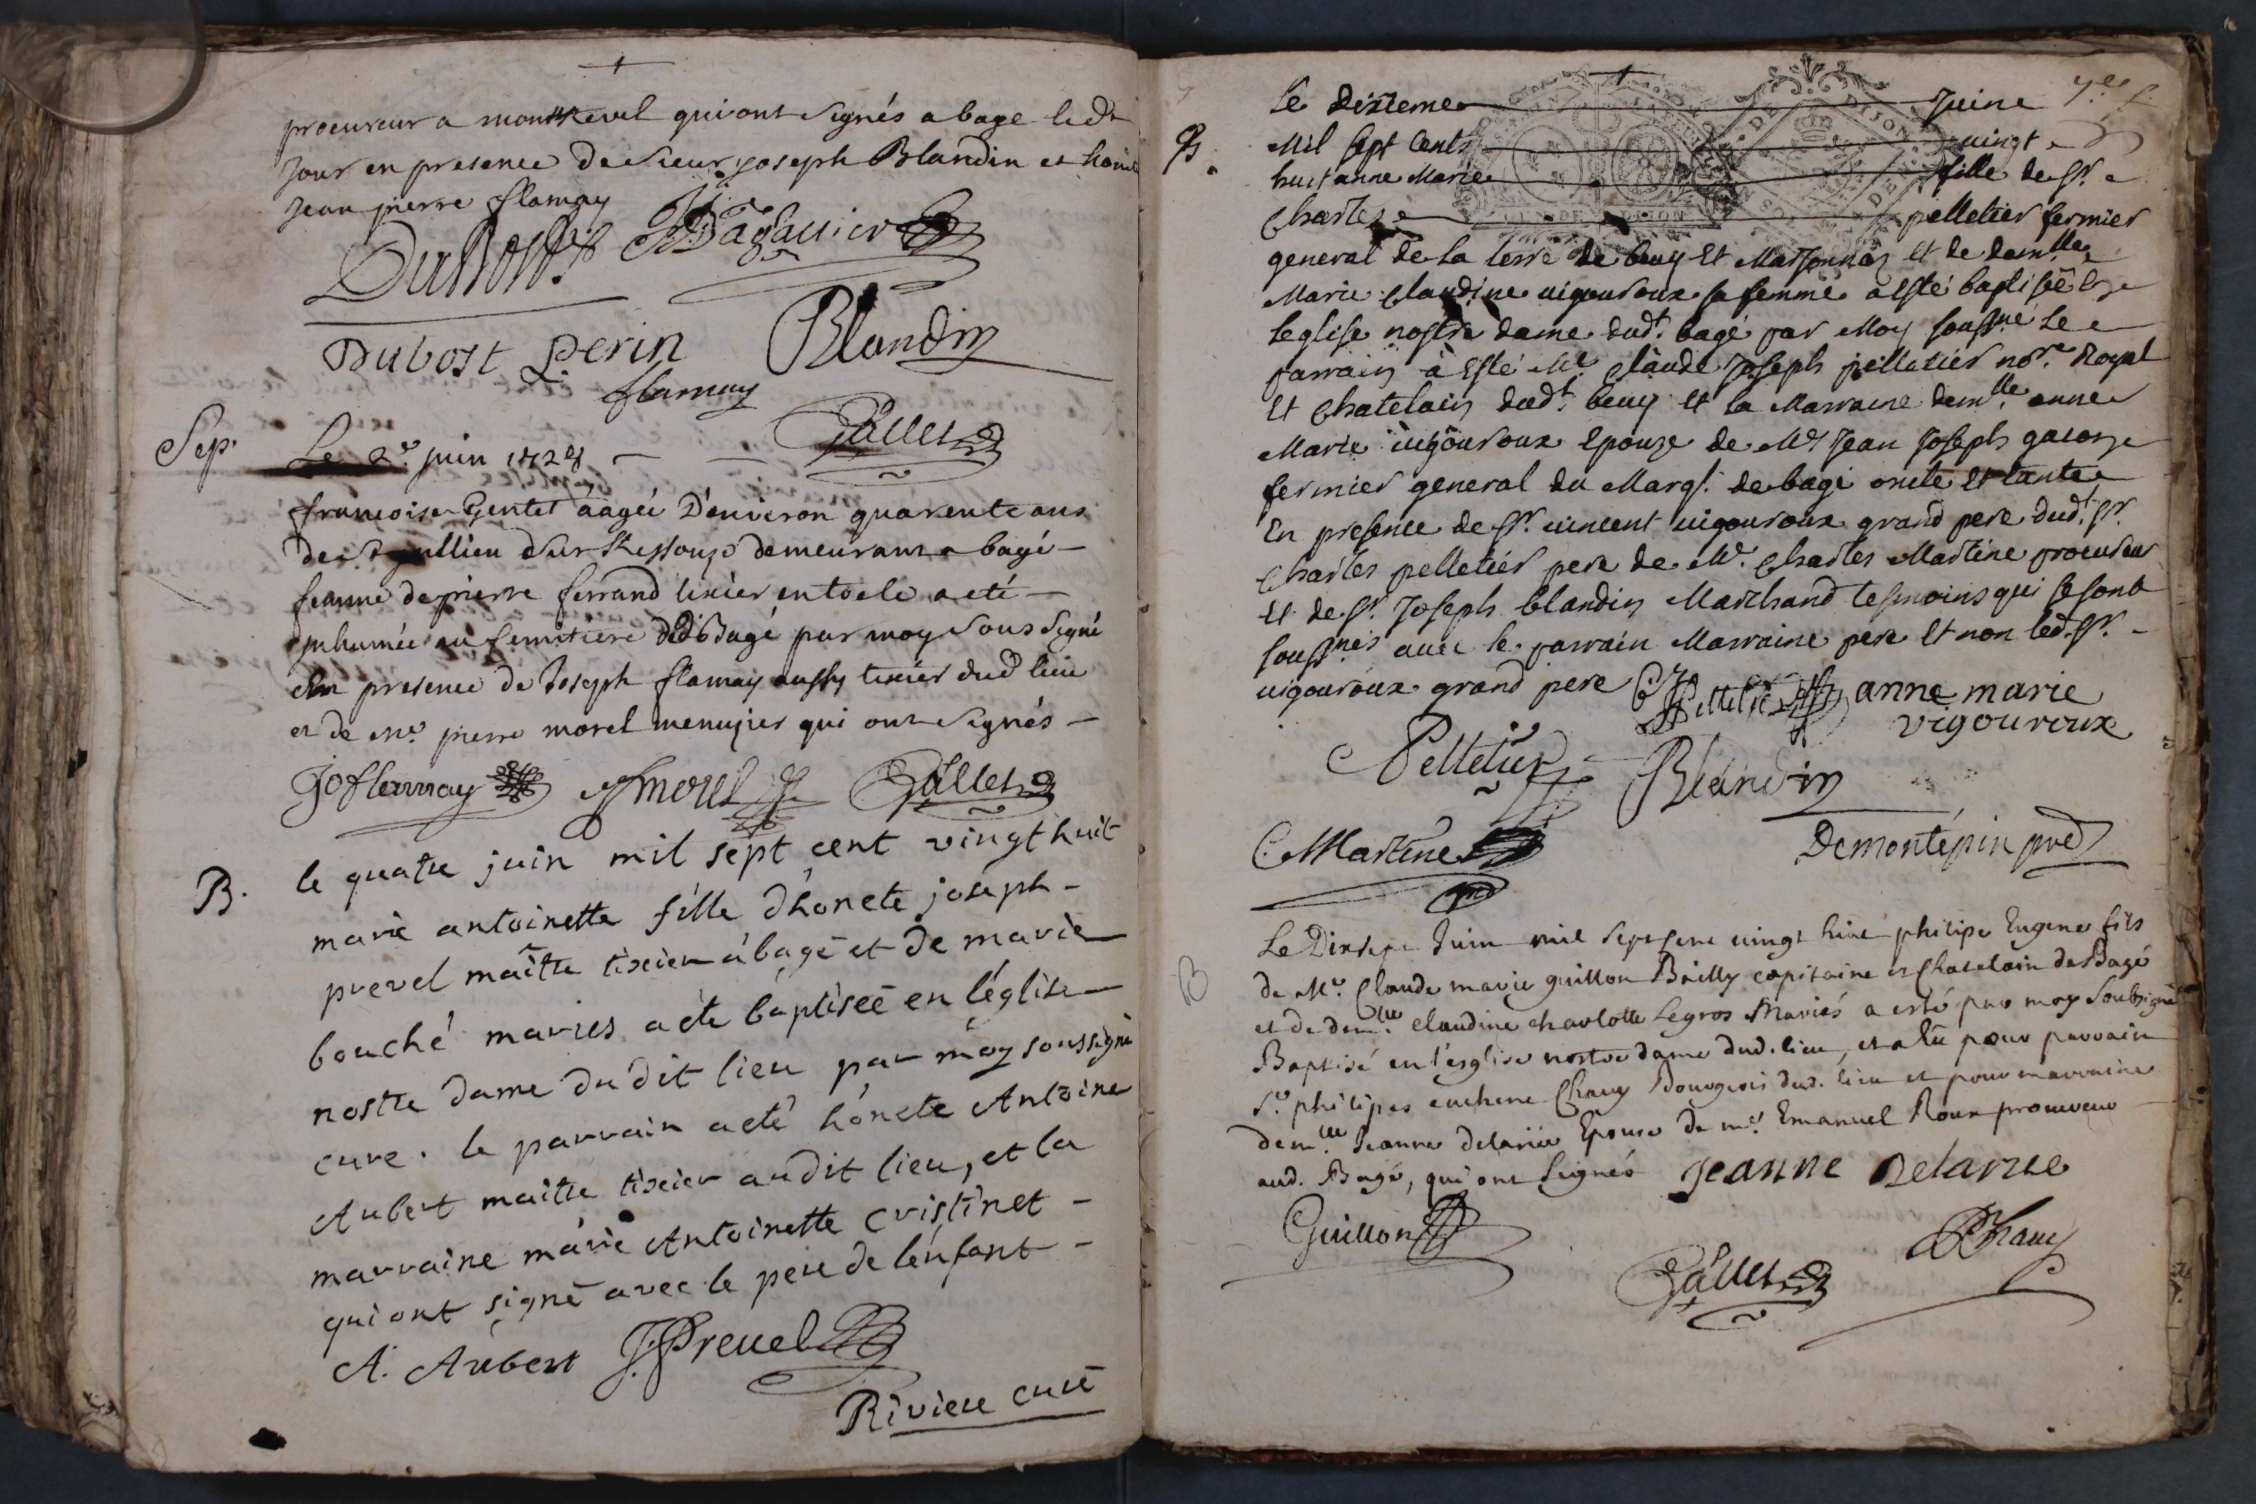 procureur a montrevel qui ont signés a bage led.t
jour en presence de sieur joseph Blandin et
jean pierre flamay
Dubost
Dubost Perin Blandin
flamay
Gallet
Sep. Le 2.e juin 1728
francoise Gentet aagée D'environ quarente ans
de St jullien sur demeurant a bagé
femme de pierre ferrand tixier en toile a eté
inhumée au semitiere dud Bagé par moy sous signé
En presence de Joseph flamay aussy tixier dud lieu
et de me. pierre morel menusier qui ont signés
Jo flamay morel Gallet
B. le quatre juin mil sept cent vingt huit
marie antoinette fille d'honete joseph
prevel maitre tixier a bagé et de marie
bouché mariés a eté baptiseé en l'eglise
nostre dame du dit lieu par moy soussigné
cure. le parrain a eté honete Antoine
Aubert maitre tixier au dit lieu, et la
marraine marie Antoinette cristinet
qui ont signé avec le pere de l'enfant
A. Aubert J. Prevel
Riviere curé
Le dixieme Juine
B. Mil sept Cents vingt
huit anne Marie fille de Sr.
Charles pelletier fermier
general de la terre de beuy Et Marsonnas Et de dem.lle
Marie Claudine uigouroux sa femme a Esté baptiseé En
leglise nostre dame dud.t bagé par Moy souss.né Le
parrain à Esté Me Claude Joseph pelletier no.re Royal
Et Chatelain dud.t beuy et la Marraine dem.lle anne
Marie uigouroux Epouze de Mr Jean Joseph
fermier general du Marq.t de bagé oncle Et tante
En presence de Sr. uincent uigouroux grand pere dud.t Sr.
Charles pelletier pere de Me. Charles Martine procureur
Et de Sr. Joseph blandin Marchand tesmoins qui se sont
souss.nés auec le parrain Marraine pere Et non led. Sr.
uigouroux grand pere Pelletier anne marie
vigouroux
Pelletier Blandin
C. Martine Demontépin
B Le Dixsept Juin mil sept cent vingt huit philipe Eugene fils
de Me. Claude marie guillon Bailly capitaine et Chatelain de Bagé
et de dem.lle claudine charlotte Legros Mariés a esté par moy soubsigné
Baptisé en l'esglise nostre dame dud. lieu, et a eü pour parrain
Sr. philipes eucherne Chaug Bourgeois dud. lieu et pour marraine
dem.lle Jeanne delarüe Epouse de me. Emanuel Roux procureur
aud. Bagé, qui ont signés Jeanne Delarue
Guillon
Gallet